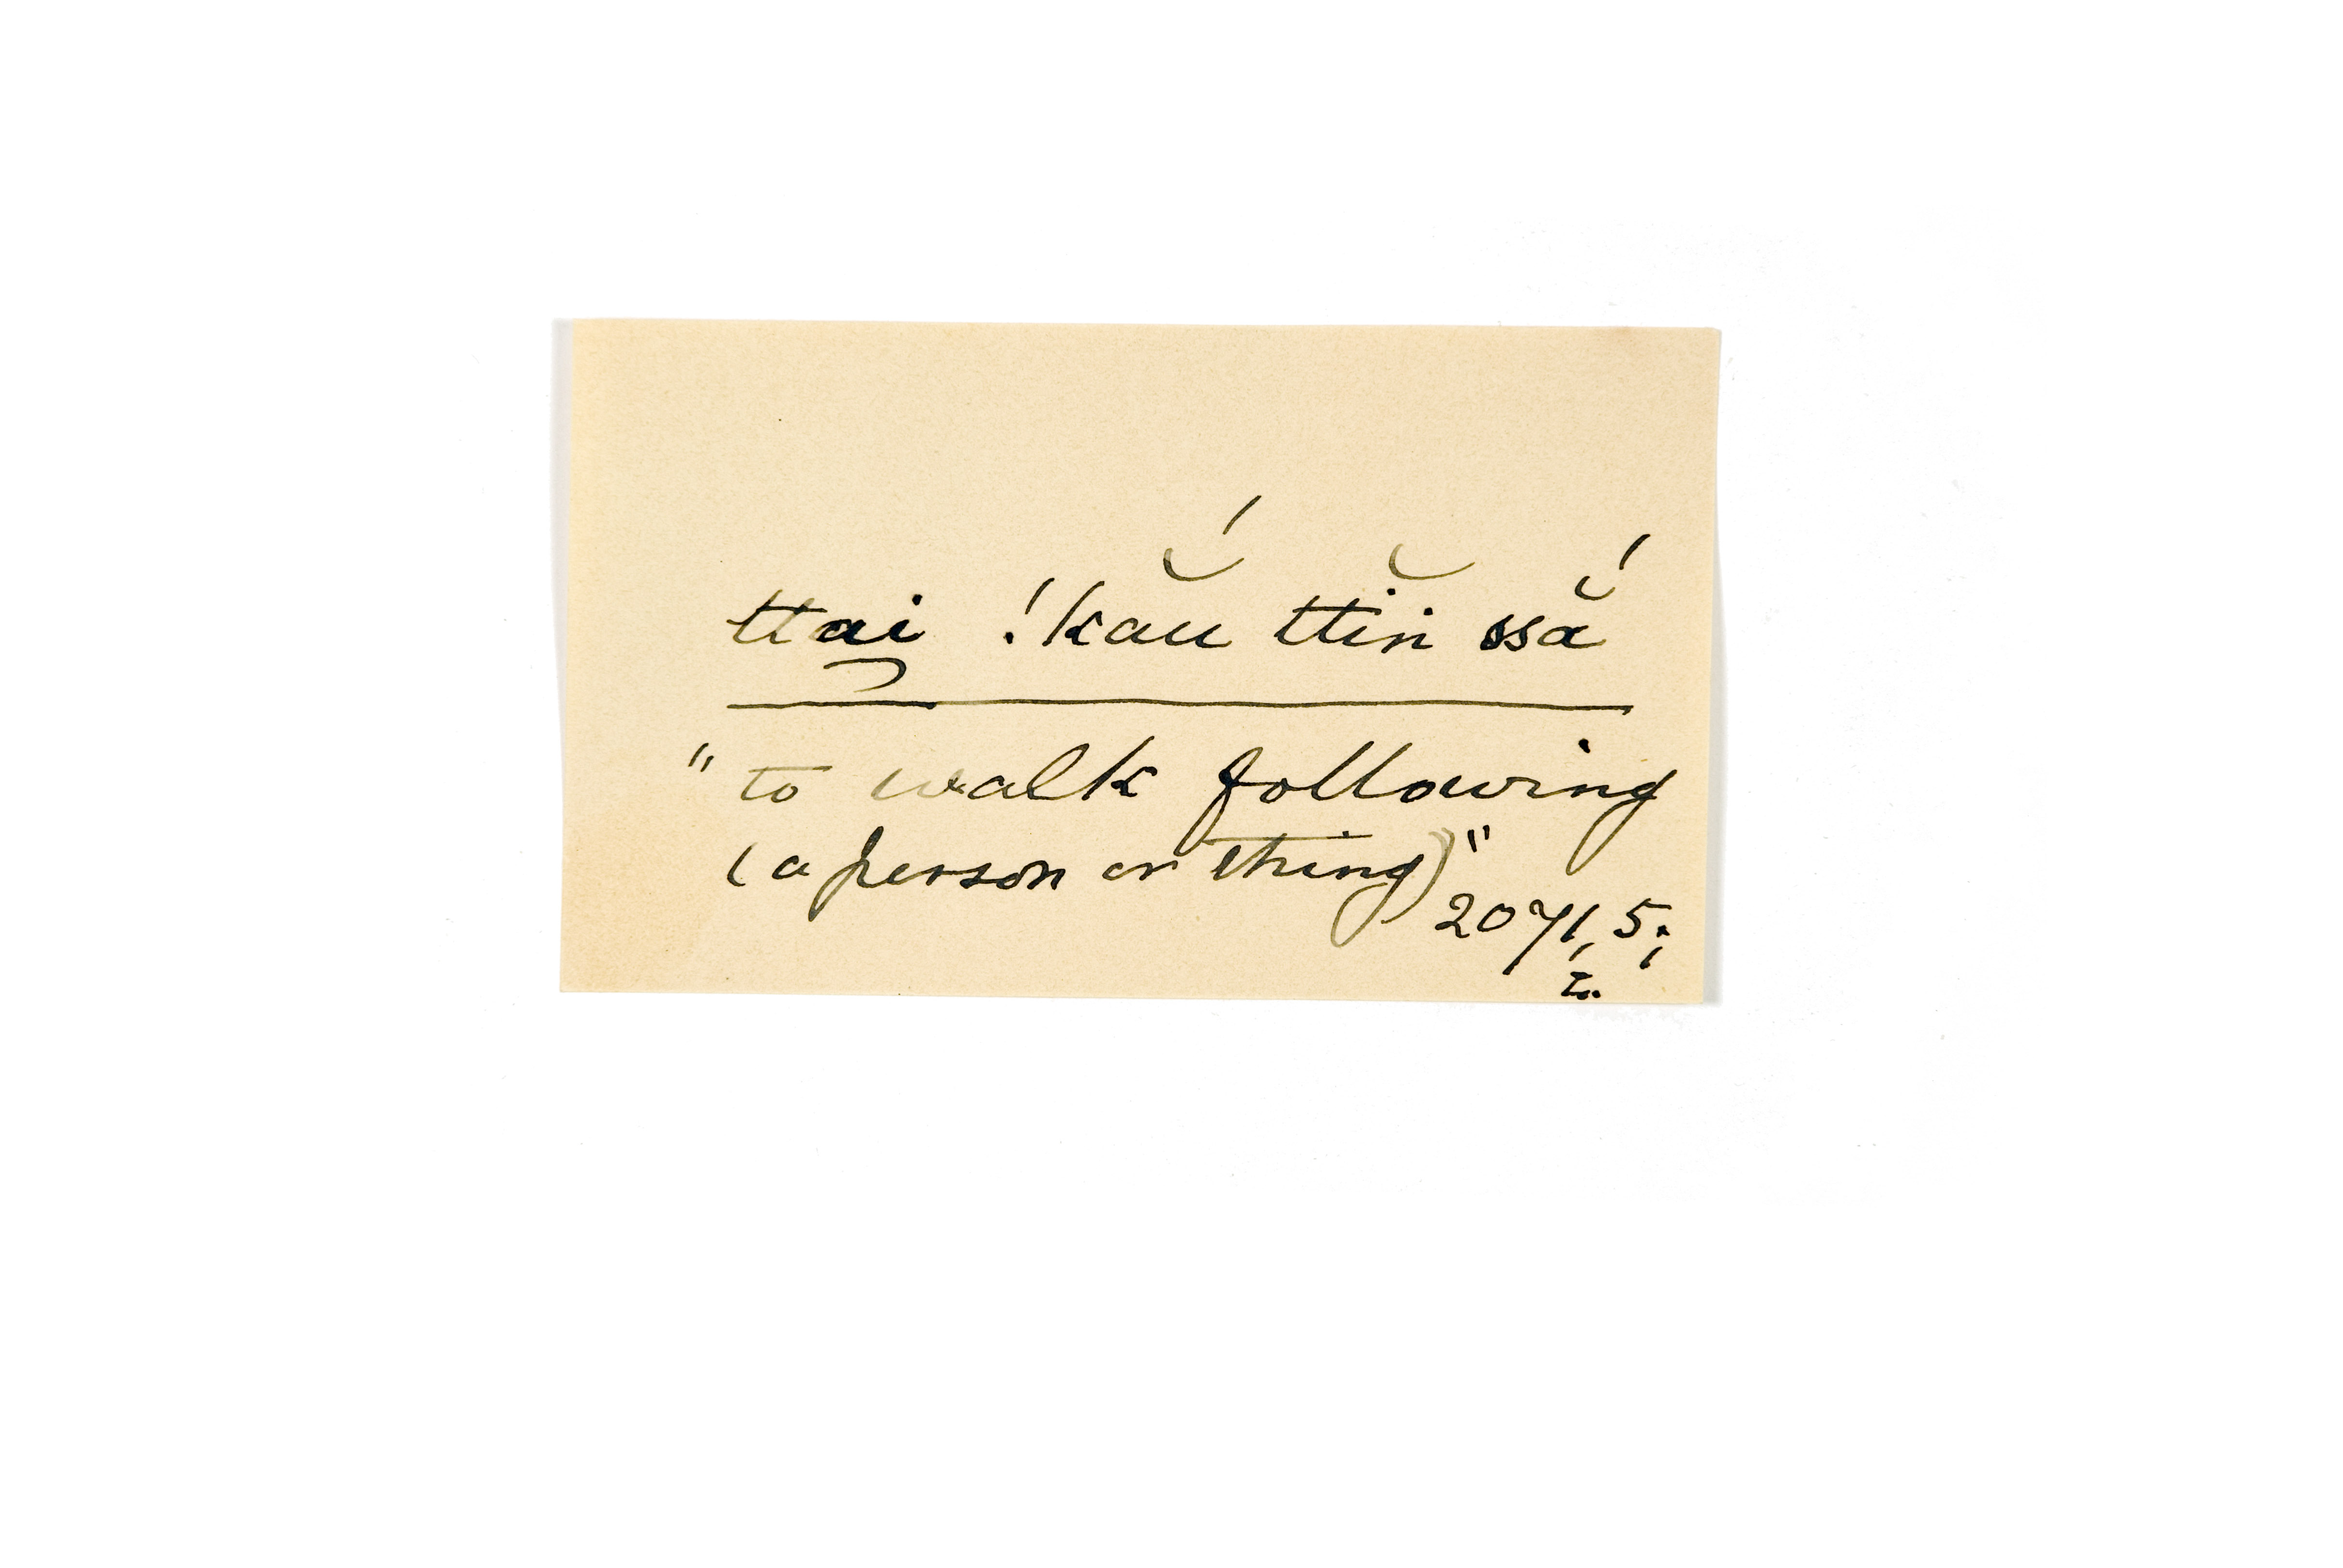 ttai̯ !kắu ttĭn̄ ssắ
" to walk following
(a person or thing)"
2071, 5;